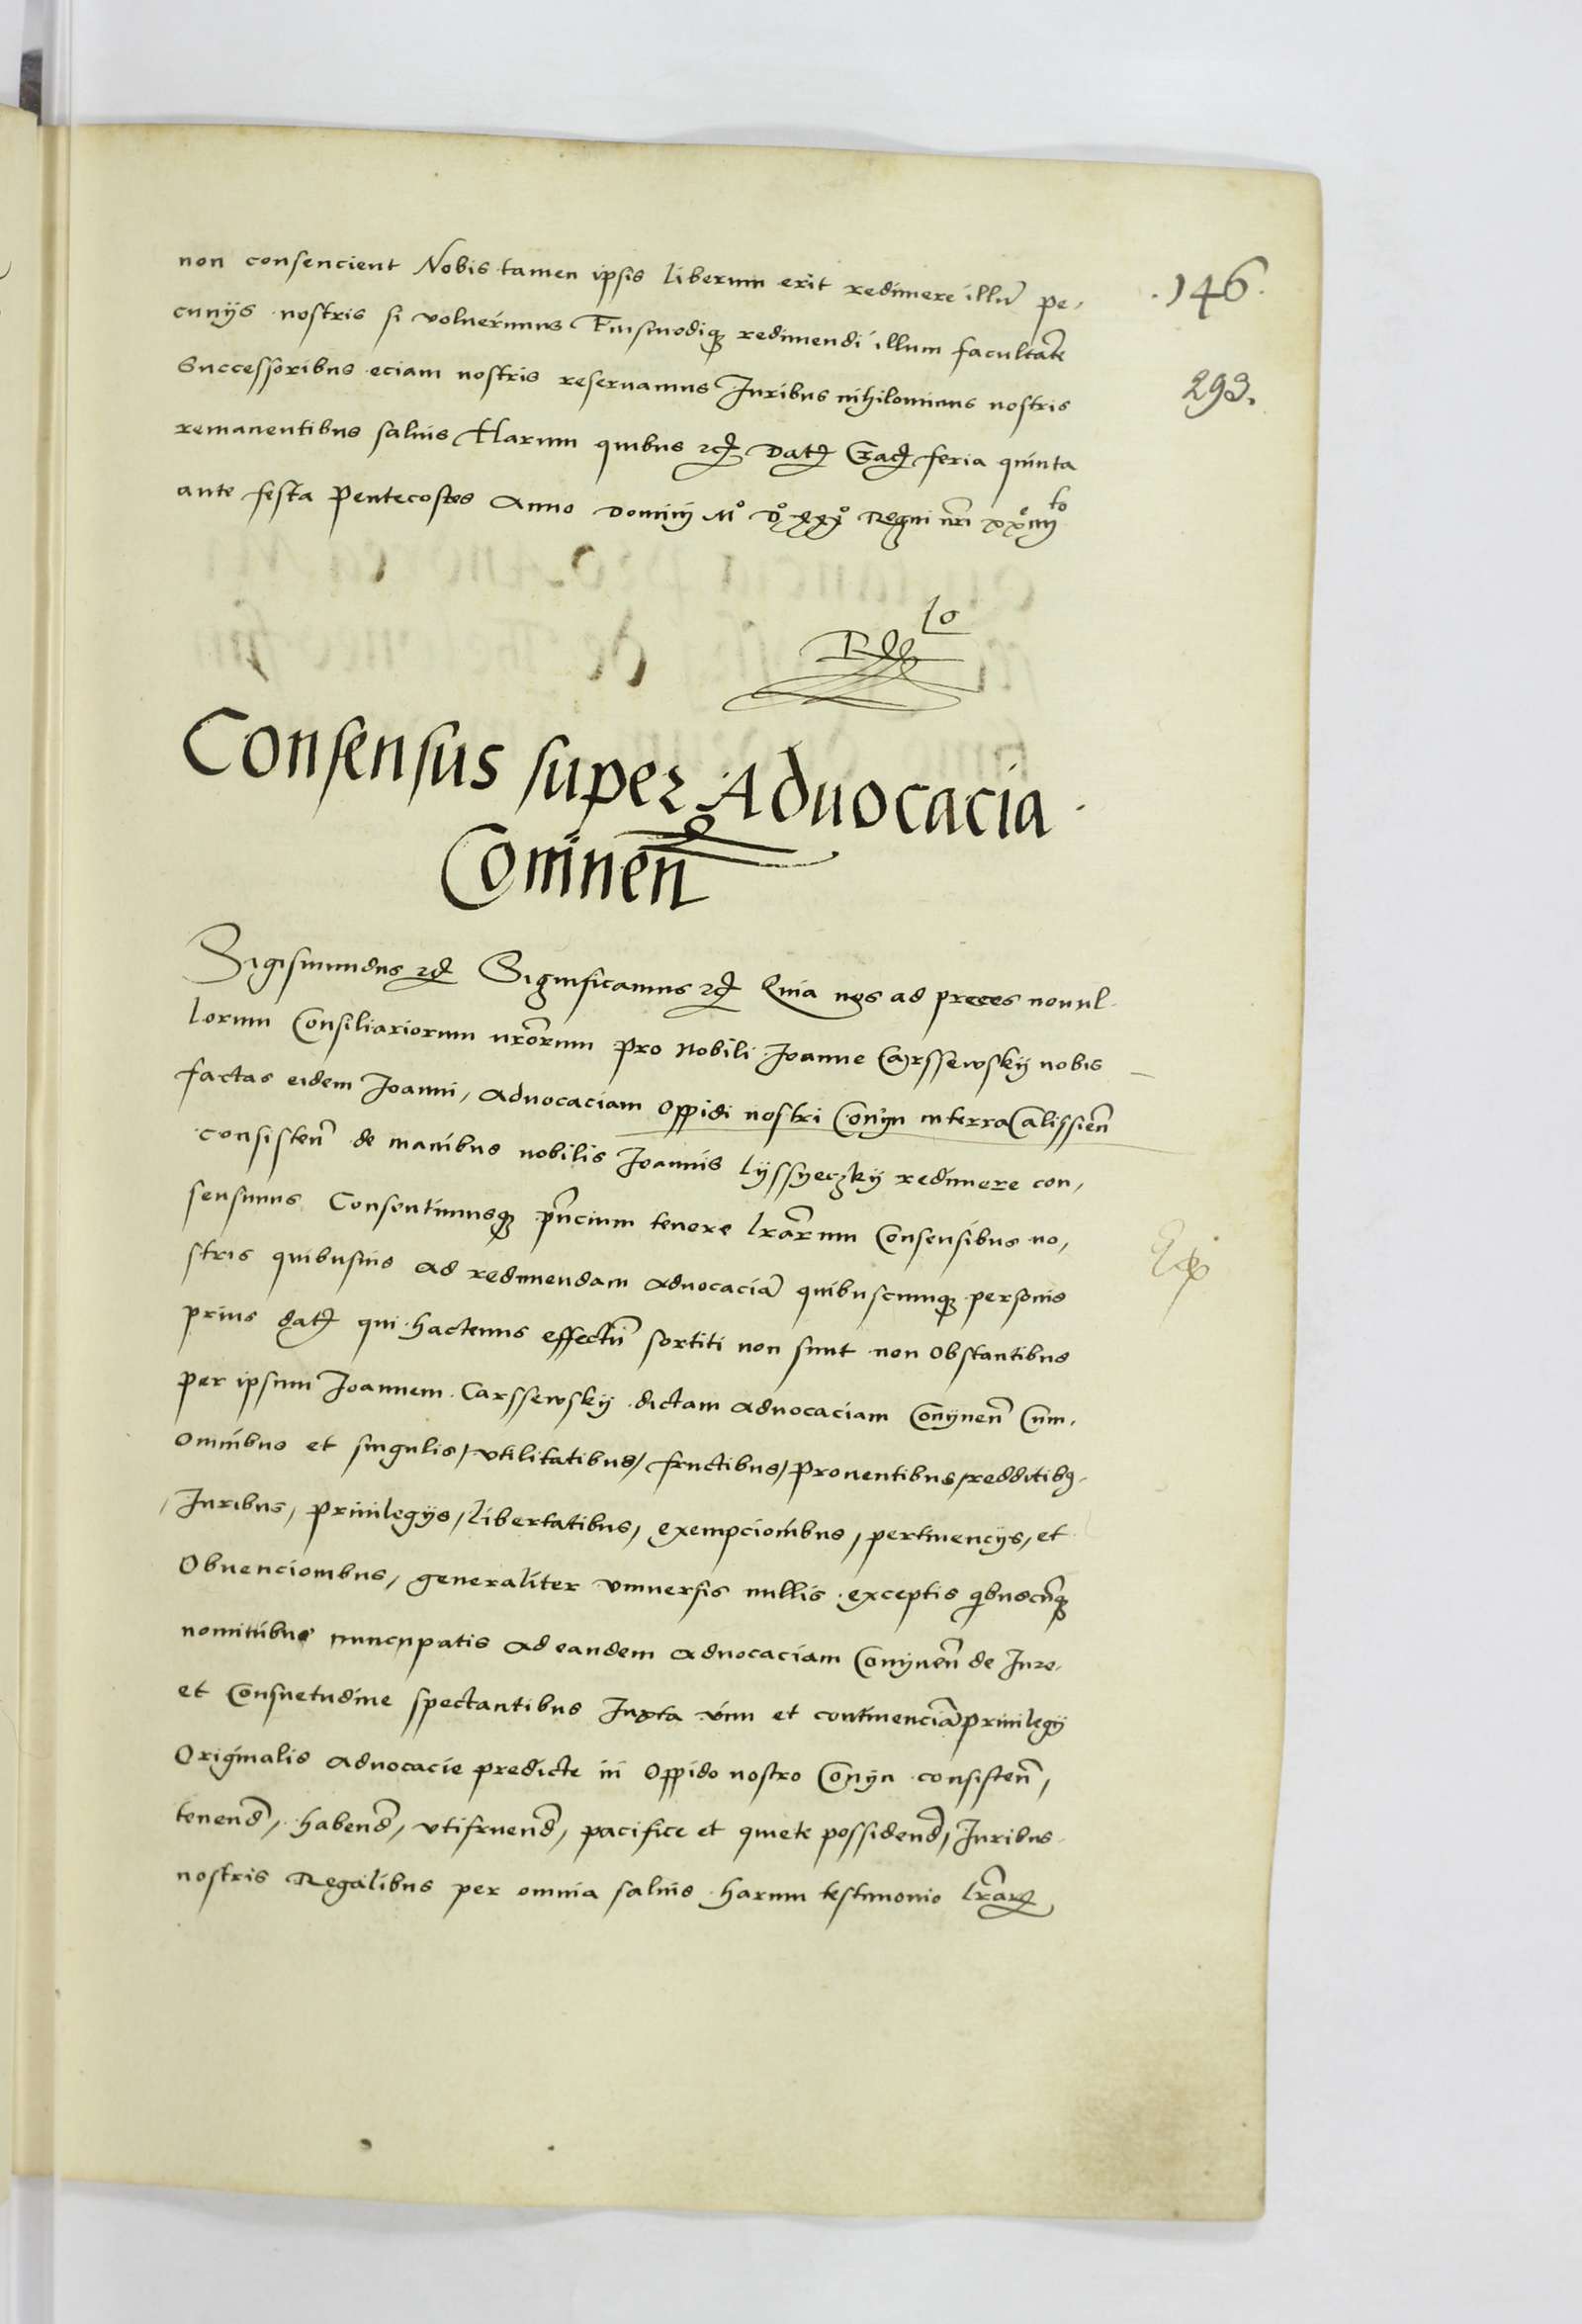 non consencient Nobis tamen ipsis liberum erit redimere illũ pe,
cuniis nostris si voluerimus Eiusmodiq; redimendi illum facultatẽ
Successoribus eciam nostris reseruamus Juribus nihilominus nostris
remanentibus saluis Harum quibus etc Dat Crac feria quinta
ante festa Pentecostes Anno Domini M° D° xxx° Regni nr̃i xx°iiii to
Consensus super Aduocacia
Coninen̄
Sigismundus etc Significamus etc Quia nos ad preces nonul
lorum Consiliariorum nr̃orum pro Nobili Joanne Carssewskij nobis
factas eidem Joanni, Aduocaciam Oppidi nostri Conijn in terra Calissien̄
consisten̄ de manibus nobilis Joannis Lijssyeczkij redimere con,
sensimus Consentimusq; pñcium tenore lr̃arum Consensibus no,
stris quibusuis ad redimendam aduocaciã quibuscumq; personis
prius dat qui hactenus effectũ sortiti non sunt non obstantibus
per ipsum Joannem Carssewskij dictam aduocaciam Conijnen̄ Cum
omnibus et singulis, vtilitatibus, fructibus, prouentibus, redditib9
Juribus, priuilegijs, libertatibus, exempcionibus, pertinencijs, et
Obuencionibus, generaliter vniuersis nullis exceptis q̃buscũq;
nominibus nuncupatis ad eandem aduocaciam Conijnen̄ de Jure
et Consuetudine spectantibus Juxta vim et continenciã priuilegij
Originalis aduocacie predicte in Oppido nostro Conijn consisten̄,
tenend̃, habend̃, vtifruend̃, pacifice et quiete possidend̃, Juribus
nostris Regalibus per omnia saluis harum testimonio lr̃ar
.146.
293.